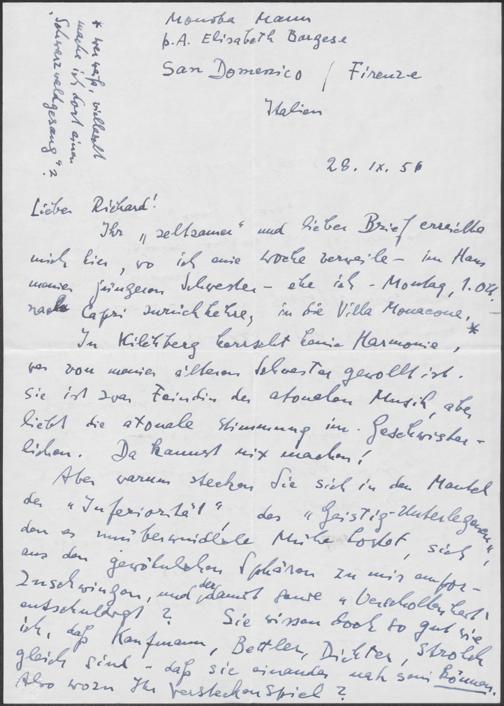 Monika Mann
p. A. Elisabeth Borgese
San Domenico / Firenze
Italien
28. IX. 56
* wer weiß, vielleicht
mache ich dort einen
"Schwarzwaldgesang"?
Lieber Richard!
Ihr „seltsamer" und lieber Brief erreichte
mich hier, wo ich eine Woche verweile – im Haus
meiner jüngeren Schwester – ehe ich – Montag, 1. Okt. –
nach Capri zurückkehre, in die Villa Monacone. *
In Kilchberg herrscht keine Harmonie,
was von meiner älteren Schwester gewollt ist.
Sie ist zwar Feindin der atonalen Musik, aber
liebt die atonale Stimmung im Geschwister-
lichen. Da kannst nix machen!
Aber warum stecken Sie sich in den Mantel
der "Inferiorität", des "Geistig-Unterlegenen",
den es unüberwindliche Mühe kostet, sich
aus den gewöhnlichen Sphären zu mir empor-
zuschwingen, und der damit seine "Verschollenheit"
entschuldigt? Sie wissen doch so gut wie
ich, daß Kaufmann, Bettler, Dichter, Strolch
gleich sind – daß sie einander nah sein können.
Also wozu Ihr Versteckenspiel?